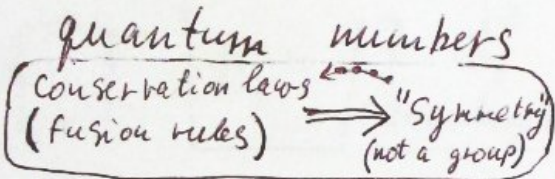 quantum numbers
Conservation laws
(fusion rules) ⟹ "Symmetry"
(not a group)